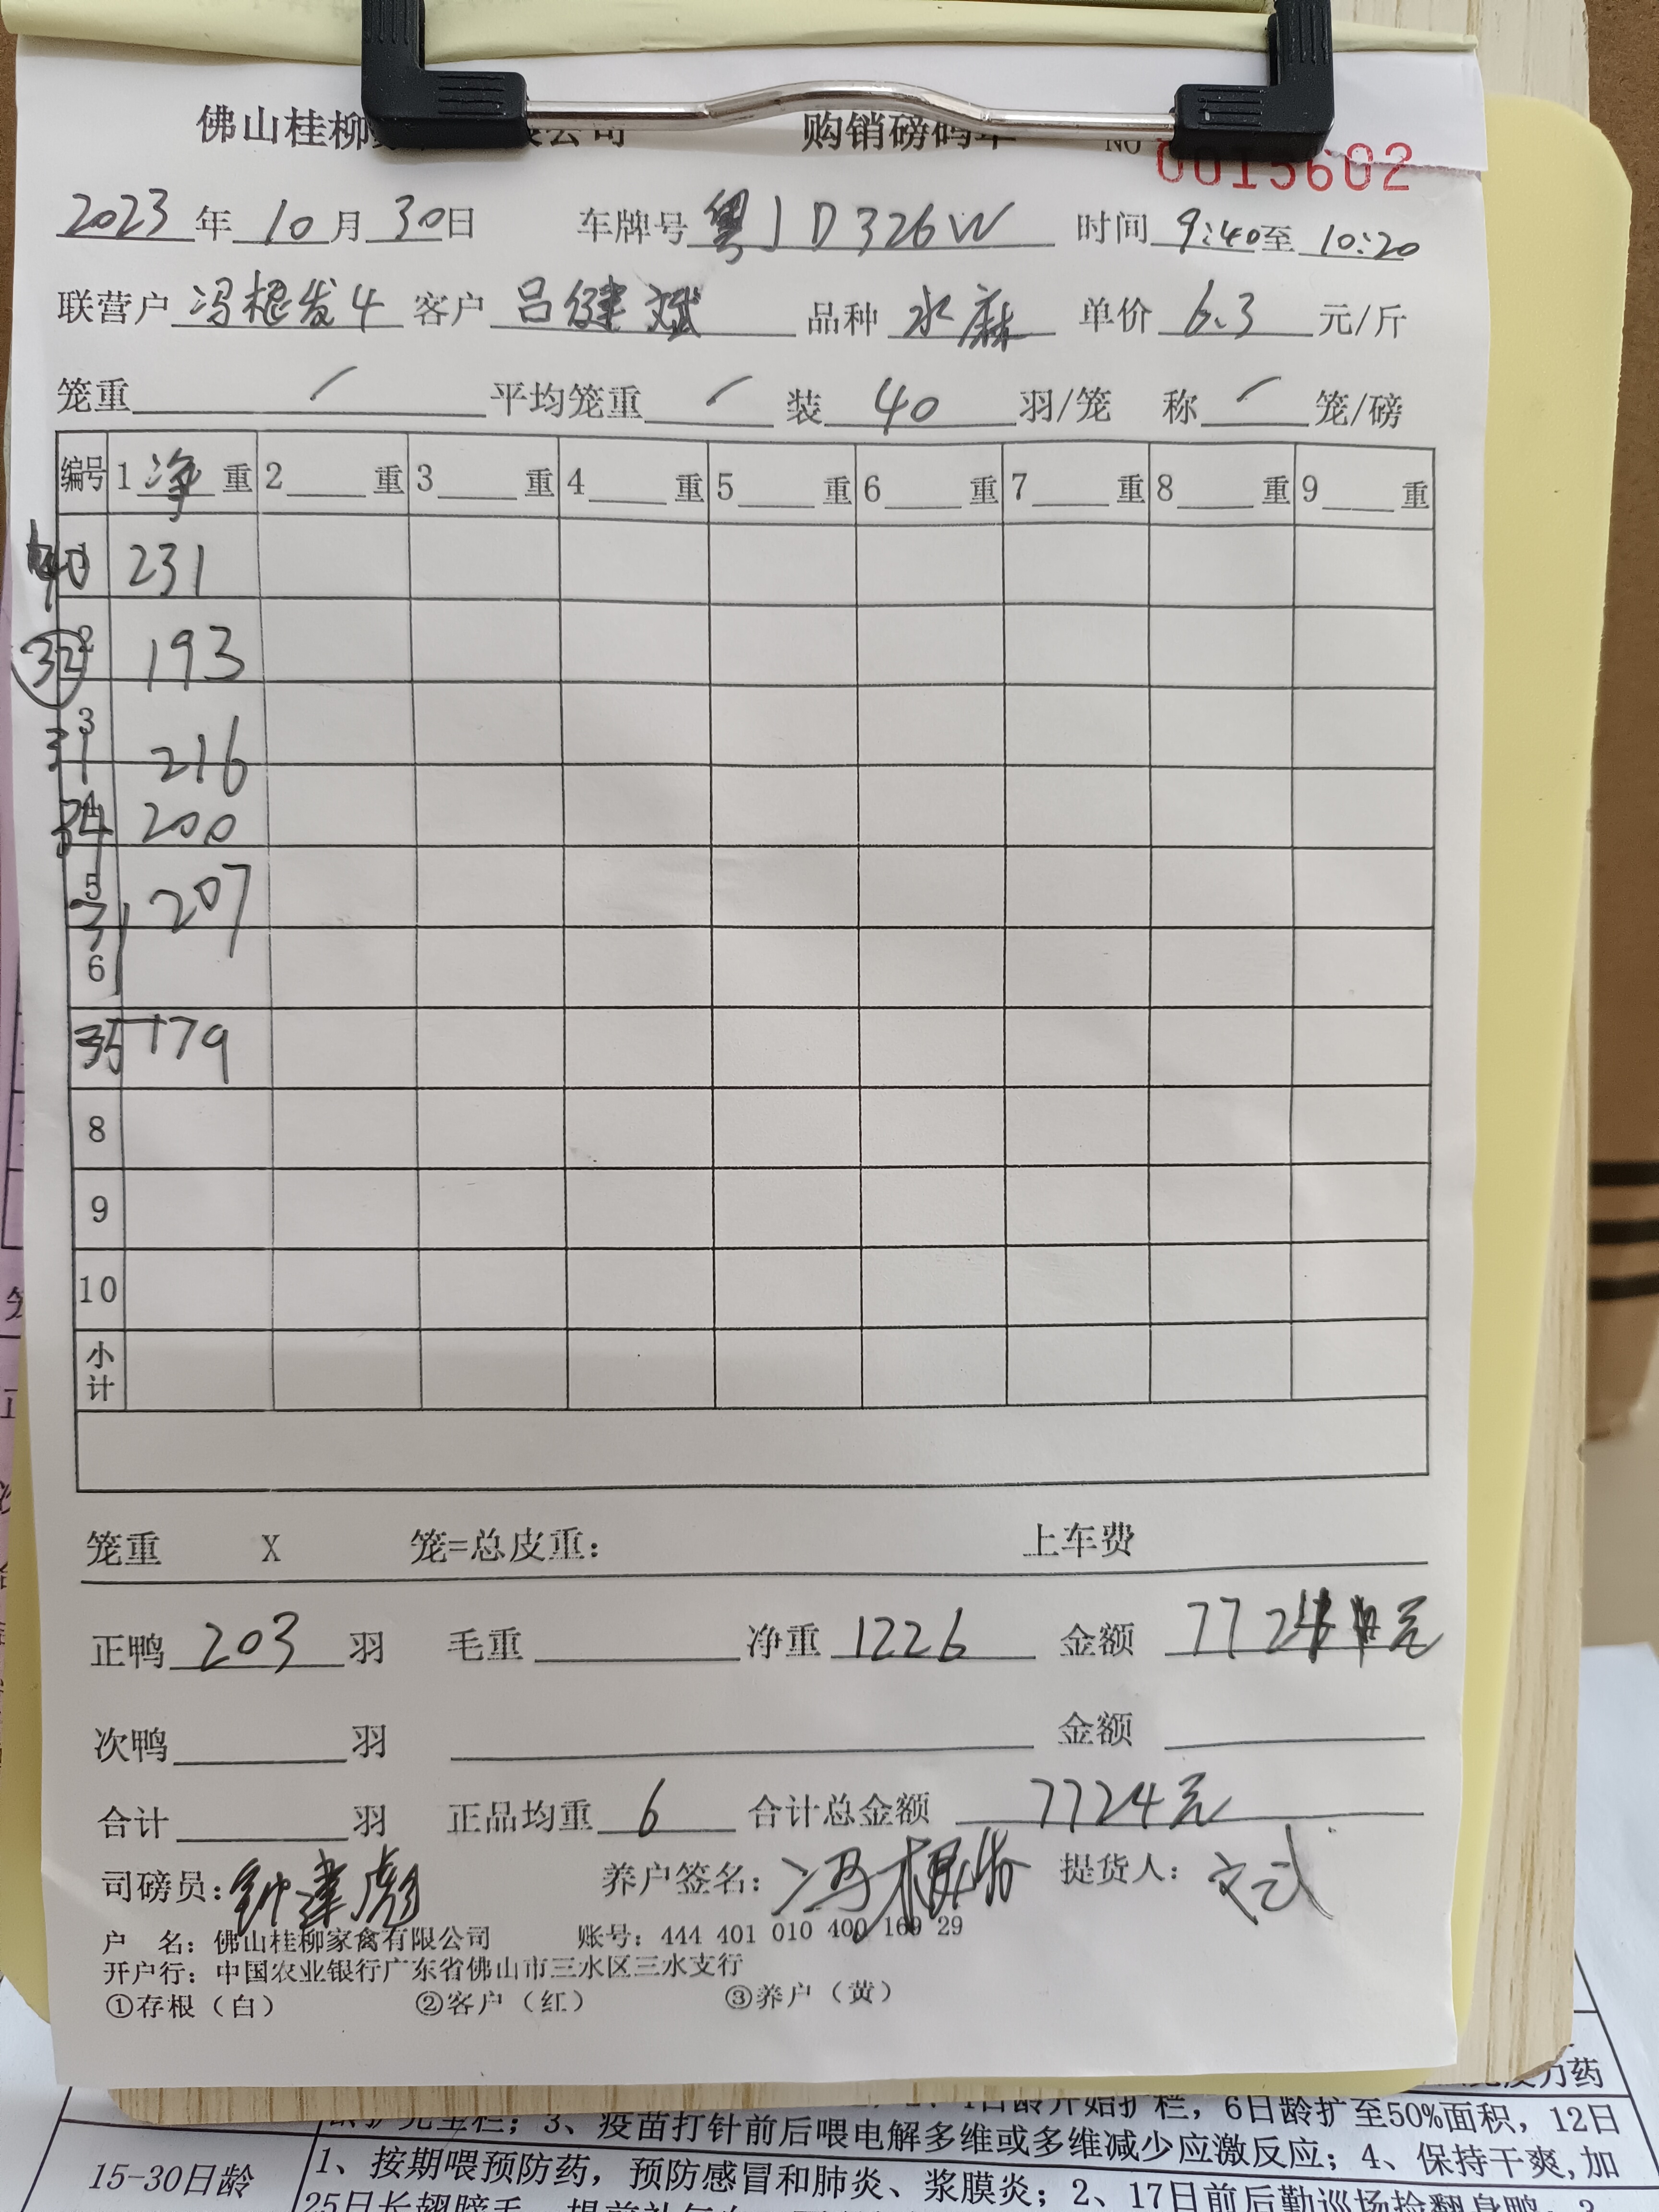 佛山桂柳 公司 购销磅码单 NO 0015602
2023年10月30日 车牌号粤JD326W 时间9:40至10:20
联营户冯根发4 客户吕健斌 品种水麻 单价6.3元/斤
笼重/ 平均笼重/ 装40羽/笼 称/笼/磅
编号 1净重 2重 3重 4重 5重 6重 7重 8重 9重
40 231
2 32 193
3 31 216
34 200
5 31 207
6
35 179
8
9
10
小计
笼重 X 笼=总皮重: 上车费
正鸭203羽 毛重 净重1226 金额7724元
次鸭 羽 金额
合计 羽 正品均重6 合计总金额7724元
司磅员:钟建彪 养户签名:冯根发 提货人:
户 名: 佛山桂柳家禽有限公司 账号: 444 401 010 400 169 29
开户行: 中国农业银行广东省佛山市三水区三水支行
①存根(白) ②客户(红) ③养户(黄)
方药
1日龄开始扩栏, 6日龄扩至50%面积, 12日
3、疫苗打针前后喂电解多维或多维减少应激反应; 4、保持干爽,加
15-30日龄 1、按期喂预防药, 预防感冒和肺炎、浆膜炎; 2、17日前后勤巡场捡翻身鸭; 3
25日长翅膀毛